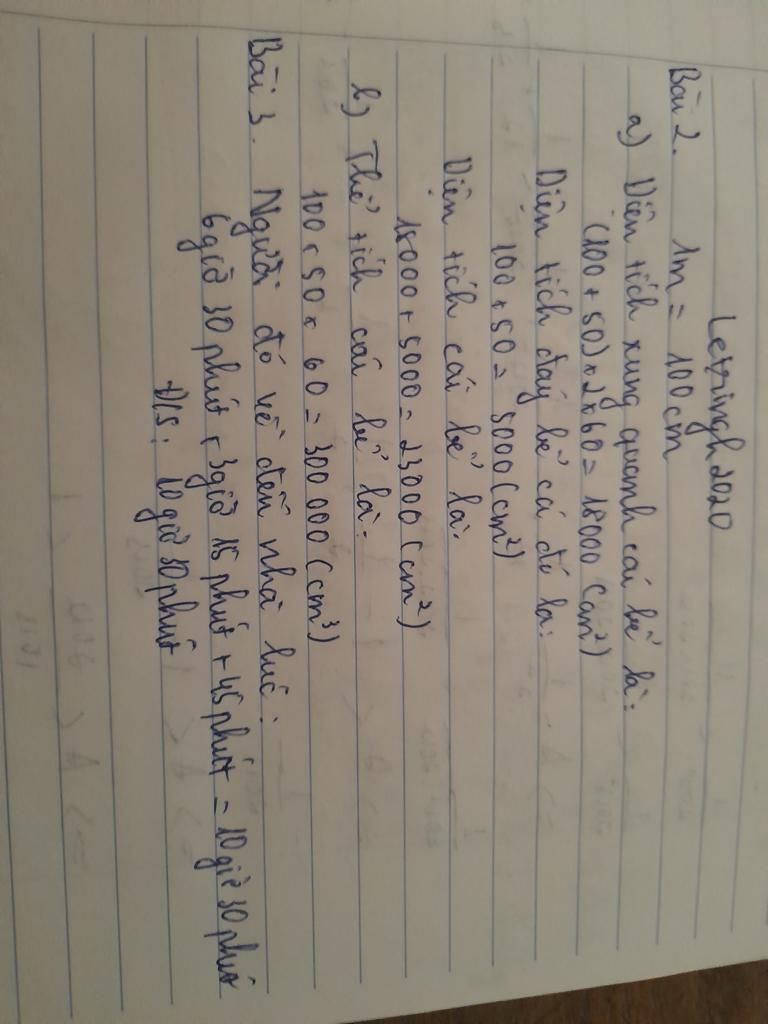 Letringh2020
Bài 2. 1m = 100cm
a) Diện tích xung quanh cái bể là:
(100 + 50) x 2 x 60 = 18000 (cm²)
Diện tích đáy bể cá đó là:
100 x 50 = 5000 (cm²)
Diện tích cái bể là:
18000 + 5000 = 23000 (cm²)
b) Thể tích cái bể là:
100 x 50 x 60 = 300 000 (cm³)
Bài 3. Người đó về đến nhà lúc:
6 giờ 30 phút + 3 giờ 15 phút + 45 phút = 10 giờ 30 phút
Đ/S: 10 giờ 30 phút